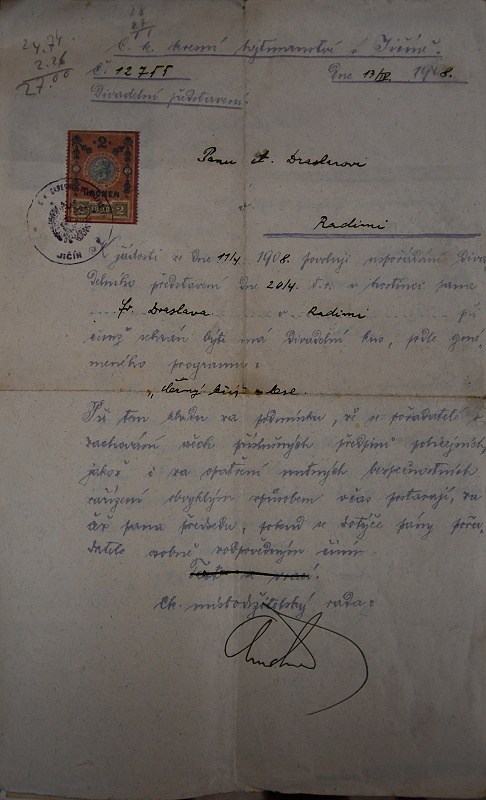 24.74
2.26
27.00
C. k. okresní hejtmanství v Jičíně.
Č. 12755 Dne 13/IV 1908.
Divadelní představení.
2
KRONEN
JIČÍN
Panu A. Draslarovi
v
Radimi
K žádosti ze dne 11/4 1908 povoluji uspořádání diva
delního představení dne 20/4 t. r. v hostinci pana
Fr. Draslara v Radimi při
čemž sehrán býti má divadelní kus, podle
meného programu:
„Černý kříž v lese.
Při tom kladu za podmínku, že se pořadatelé o
zachování všech příslušných předpisů policejních
jakož i za opatření nutných bezpečnostních
zařízení obvyklým způsobem včas postarají, za
čež pana předsedu, pokud se dotýče pány pořa-
datele osobně zodpovědným činím.
C.k. místodržitelský rada: